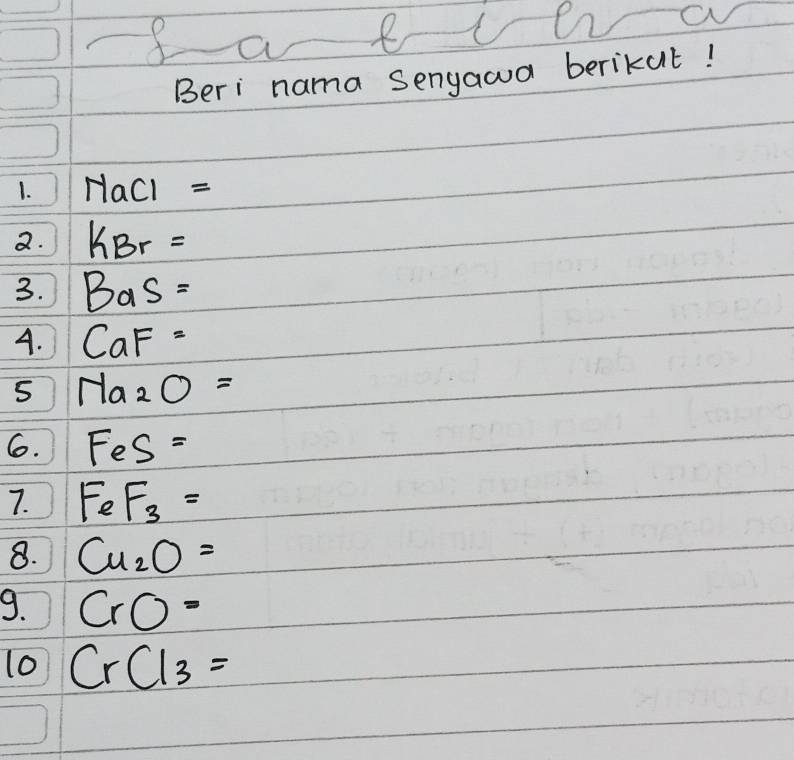 Beri nama senyawa berikut !
1. NaCl =
2. KBr =
3. BaS =
4. CaF =
5 Na2O =
6. FeS =
7. FeF3 =
8. Cu2O =
9. CrO =
10 CrCl3 =